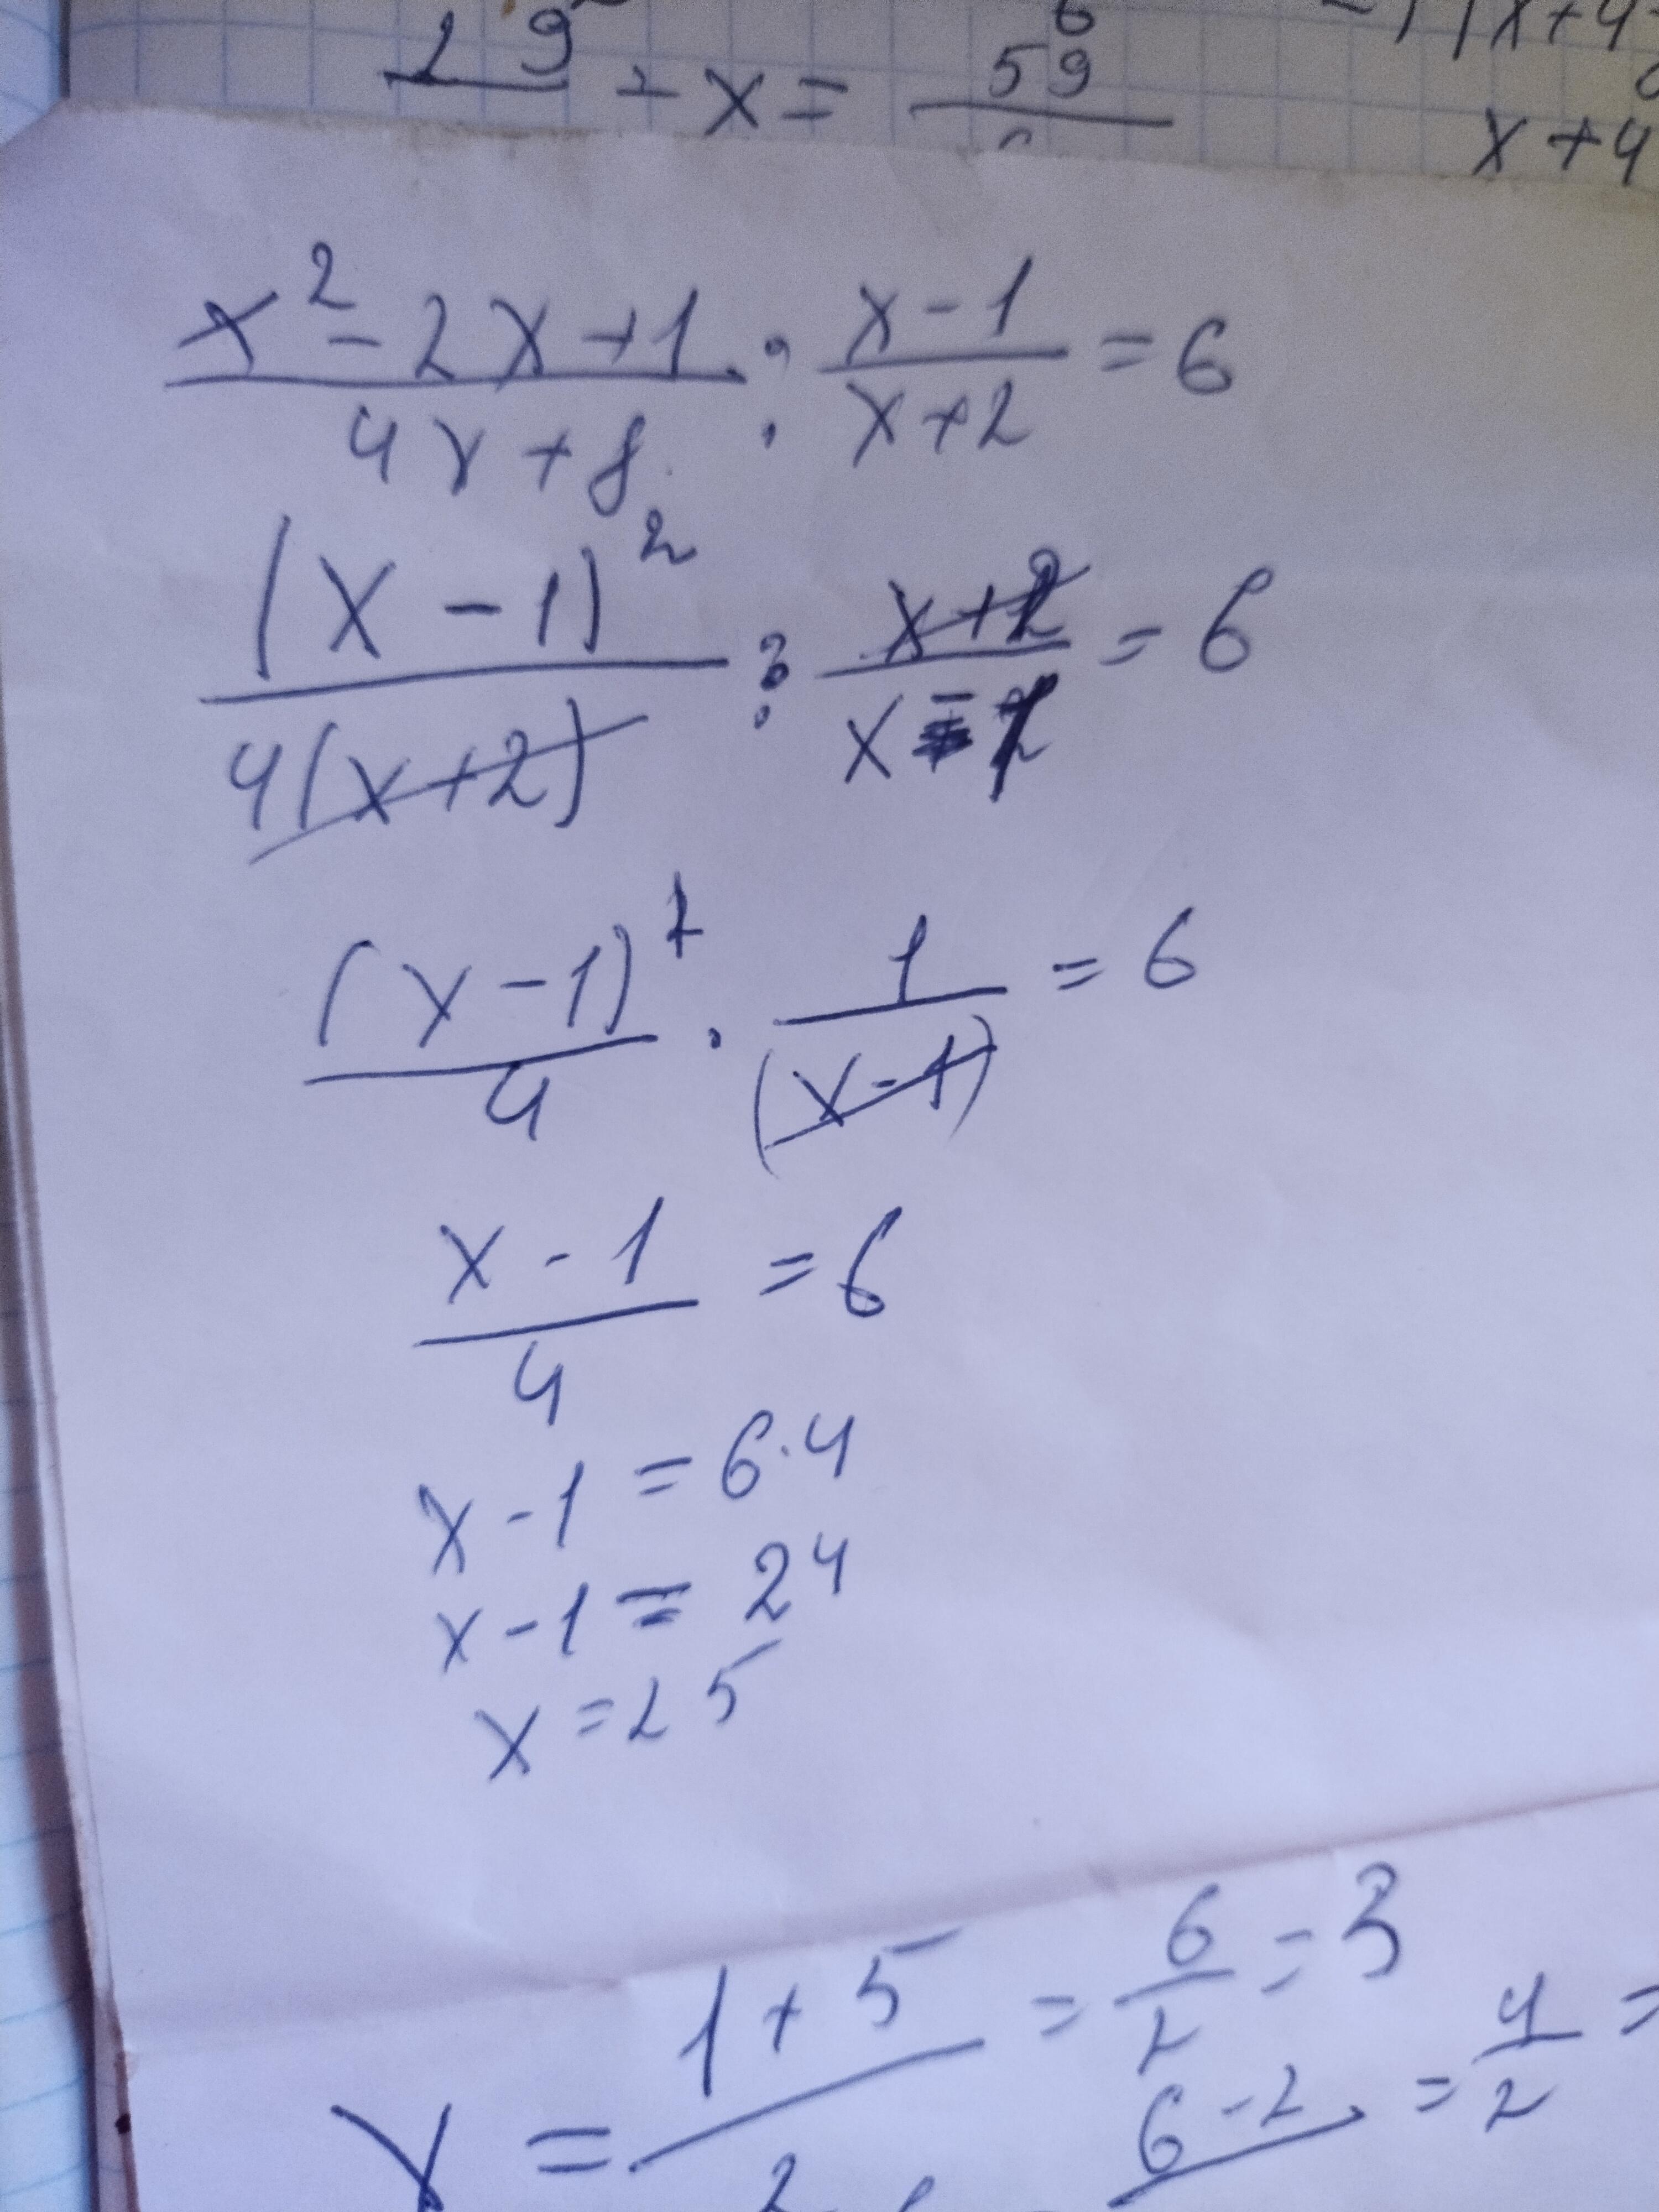 29/ + x = 59/
x+4
x+4
(x² - 2x + 1)/(4x + 8) : (x - 1)/(x + 2) = 6
(x - 1)²/(4(x + 2)) : (x + 2)/(x - 1) = 6
(x - 1)²/4 · 1/(x - 1) = 6
(x - 1)/4 = 6
x - 1 = 6 · 4
x - 1 = 24
x = 25
x = (1 + 5)/2 = 6/2 = 3
6 - 2 = 4/2 =